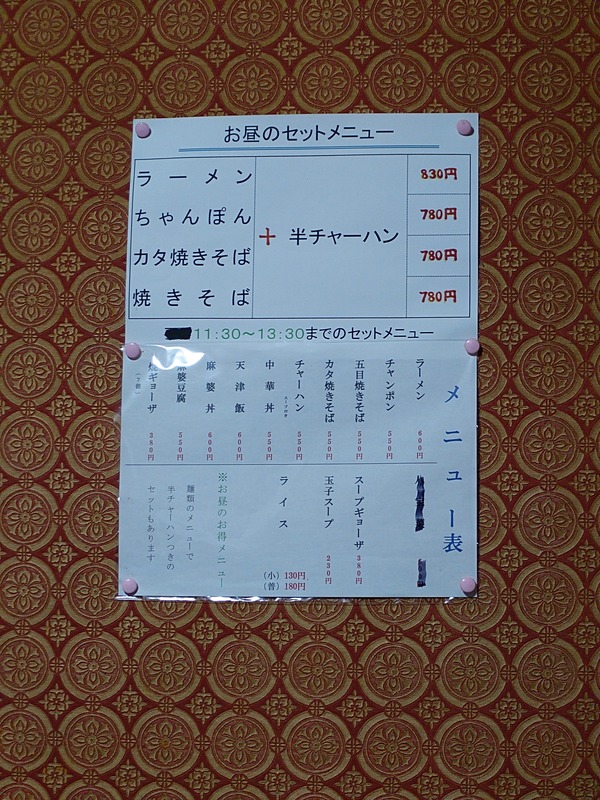 お昼のセットメニュー
ラーメン
ちゃんぽん
カタ焼きそば
焼きそば
＋ 半チャーハン
830円
780円
780円
780円
11:30～13:30までのセットメニュー
メニュー表
ラーメン 600円
チャンポン 550円
五目焼きそば 550円
カタ焼きそば 550円
チャーハン 550円
中華丼 550円
天津飯 600円
麻婆丼 600円
麻婆豆腐 550円
ギョーザ 380円
スープギョーザ 380円
玉子スープ 230円
ライス (小) 130円
(普) 180円
※お昼のお得メニュー
麺類のメニューで
半チャーハンつきの
セットもあります